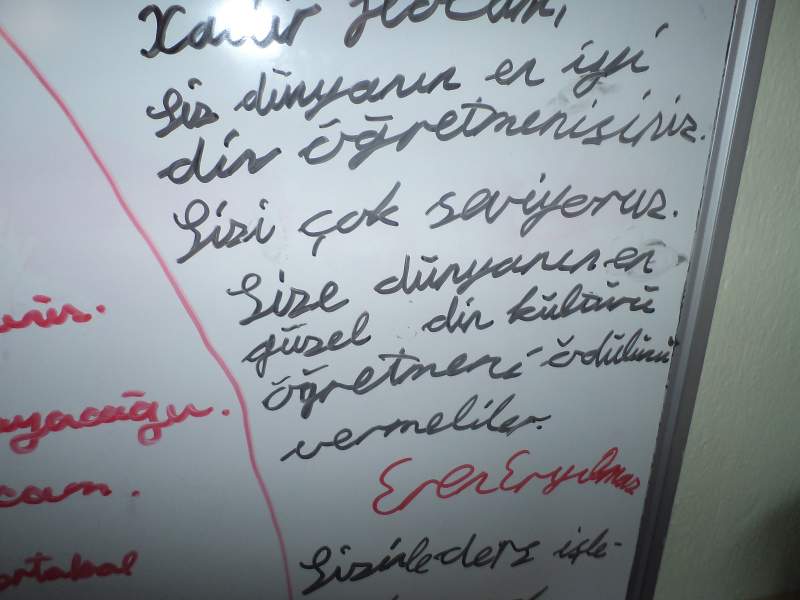 Kadir Hocam,
Siz dünyanın en iyi
din öğretmenisiniz.
Sizi çok seviyoruz.
Size dünyanın en
güzel din kültürü
öğretmeni ödülünü
vermeliler.
Eren Eryılmaz
Sizinle ders işle-
ortakal